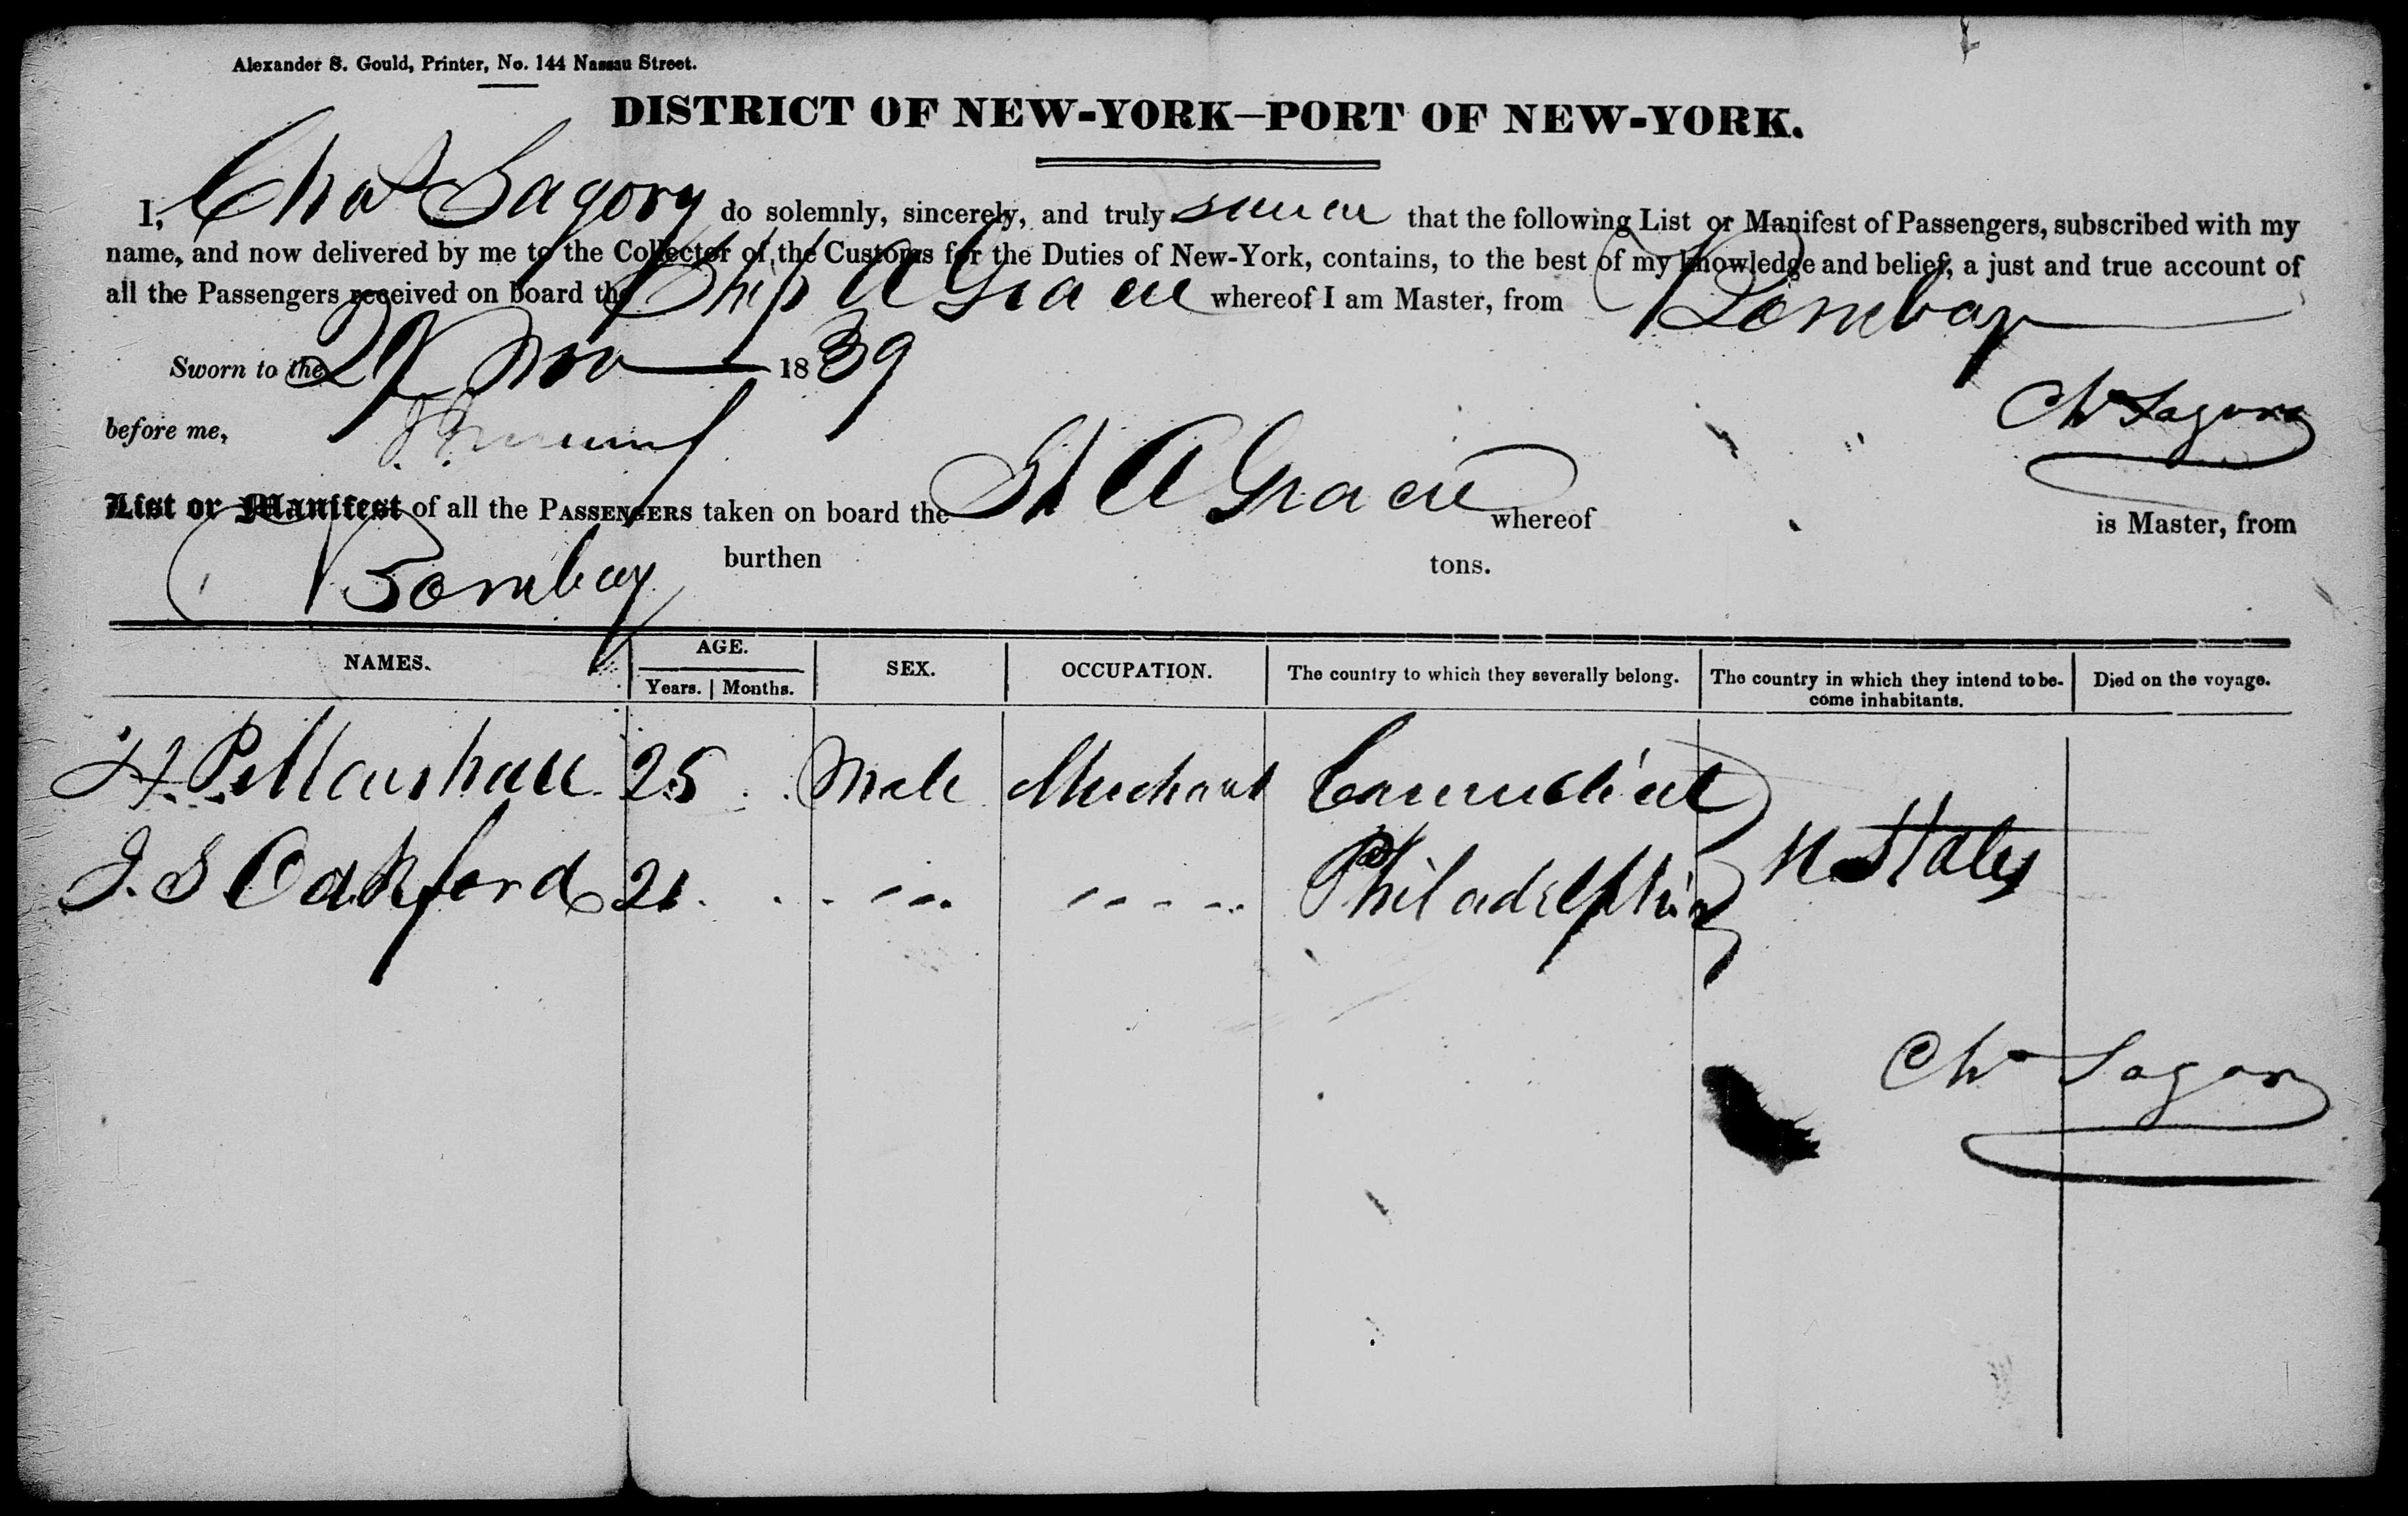 Alexander S. Gould, Printer, No. 144 Nassau Street.
DISTRICT OF NEW-YORK—PORT OF NEW-YORK.
I, Chas Sagory do solemnly, sincerely, and truly swear that the following List or Manifest of Passengers, subscribed with my
name, and now delivered by me to the Collector of the Customs for the Duties of New-York, contains, to the best of my knowledge and belief, a just and true account of
all the Passengers received on board the Ship A Gracie whereof I am Master, from Bombay
Sworn to the 29 Nov 1839
Chs Sagory
before me,
List or Manifest of all the PASSENGERS taken on board the Sh A Gracie whereof is Master, from
Bombay burthen tons.
NAMES. AGE. SEX. OCCUPATION. The country to which they severally belong. The country in which they intend to be- Died on the voyage.
Years. Months. come inhabitants.
H. P. Marshall 25 Male Merchant Connecticut
J. S Oakford 21 - - - - - - - Philadelphia U States
Chs Sagory